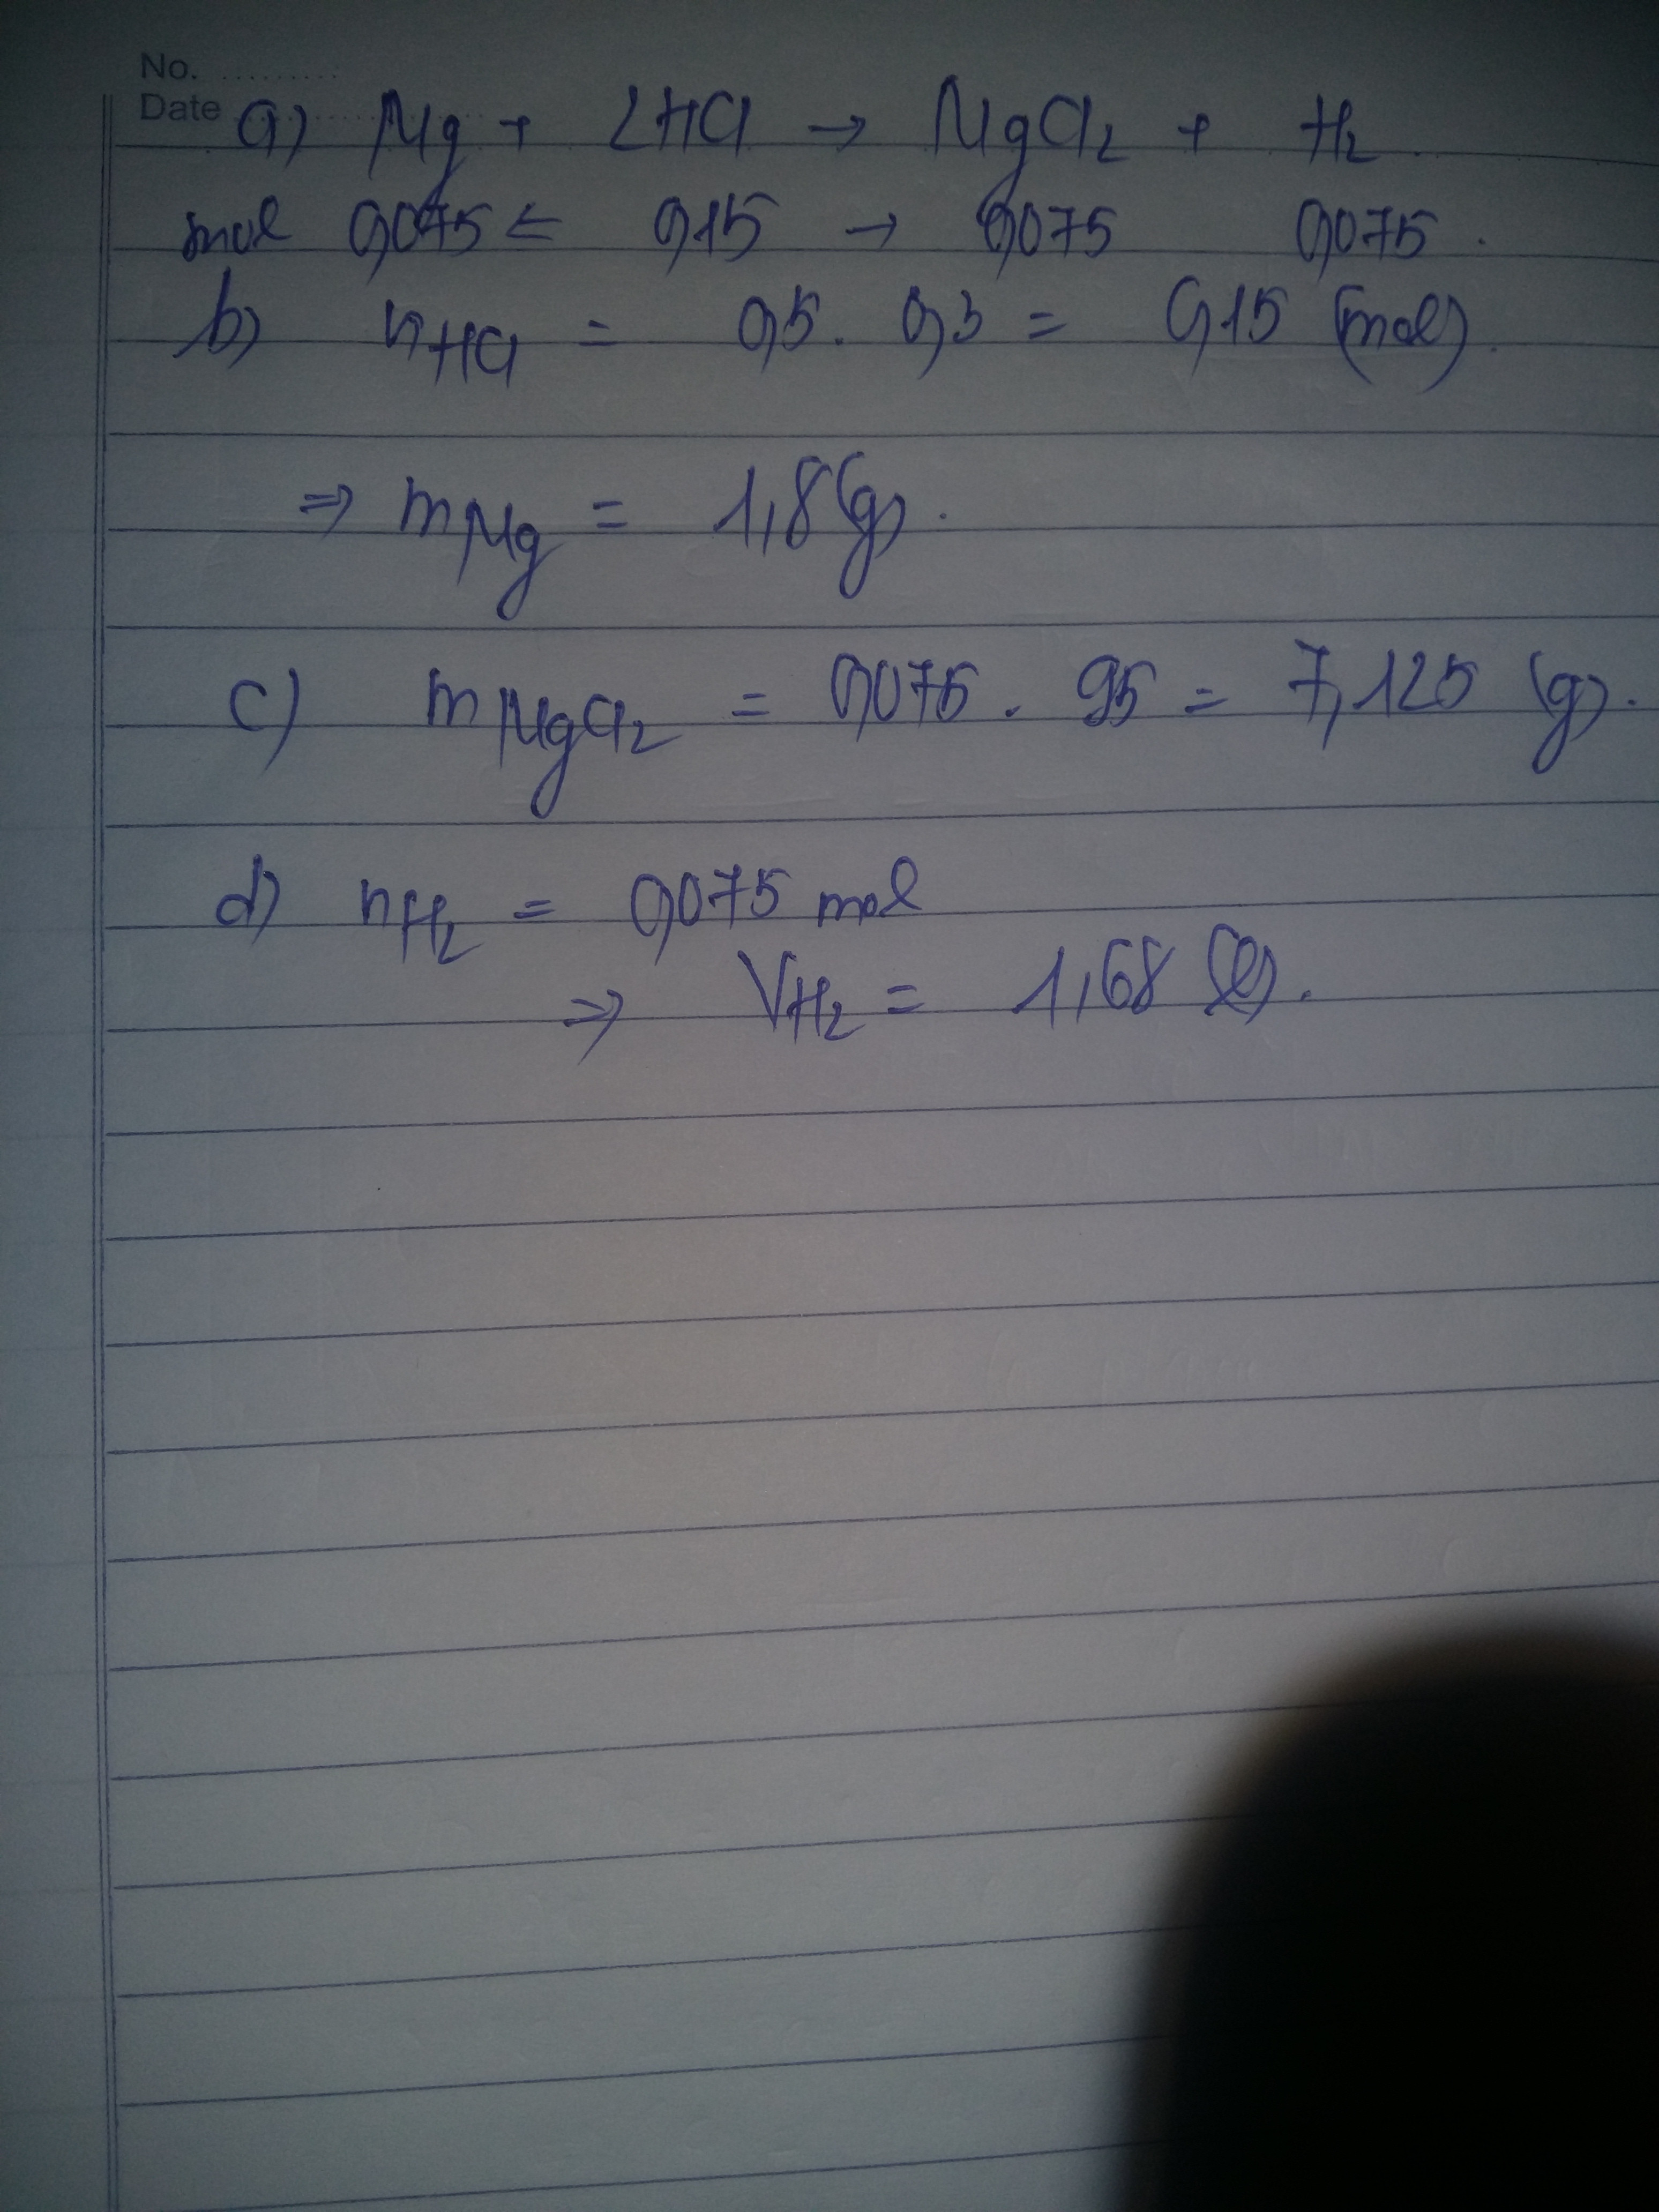 No. ..........
Date ..........
a) Mg + 2HCl → MgCl₂ + H₂
mol 0,075 ← 0,15 → 0,075 0,075.
b) nHCl = 0,5. 0,3 = 0,15 (mol).
⇒ mMg = 1,8(g).
c) mMgCl₂ = 0,075. 95 = 7,125 (g).
d) nH₂ = 0,075 mol
⇒ VH₂ = 1,68 (l).